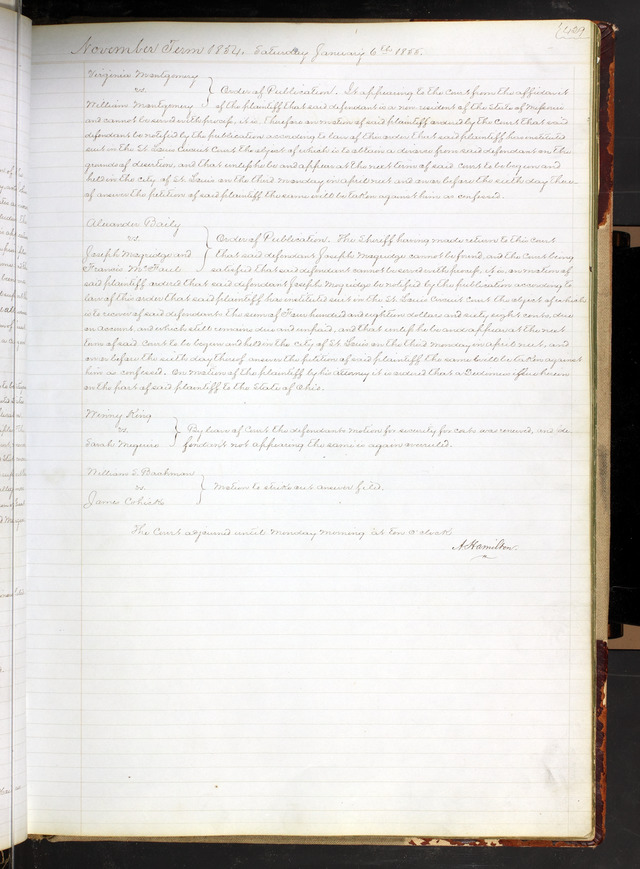 429
November Term 1854. Saturday January 6th 1855.
Virginia Montgomery
vs.
William Montgomery
Order of Publication. It appearing to the Court from the affidavit
of the plaintiff that said defendant is a non resident of the State of Missouri
and cannot be served with process. it is, therefore on motion of said plaintiff ordered by the Court that said
defendant be notified by the publication according to law of this order that said plaintiff has instituted
suit in the St Louis Circuit Court the object of which is to obtain a divorce from said defendant on the
grounds of desertion, and that unless he be and appear at the next term of said Court to be begun and
held in the City of St Louis on the third Monday in april next and on or before the sixth day there
of answer the petition of said plaintiff the same will be taken against him as confessed.
Alexander Baily
vs
Joseph Magridge and
Francis McFaul
Order of Publication. The Sheriff having made return to this Court
that said defendant Joseph Magridge cannot be found, and the Court being
satisfied that said defendant cannot be served with process, it is, on motion of
said plaintiff ordered that said defendant Joseph Magridge be notified by the publication according to
law of this order that said plaintiff has instituted suit in the St. Louis Circuit Court the object of which
is to recover of said defendants the sum of Four hundred and eighteen dollars and sixty eight cents, due
on account, and which still remains due and unpaid, and that unless he be and appear at the next
term of said Court to be begun and held in the City of St Louis on the third Monday in april next, and
on or before the sixth day thereof answer the petition of said plaintiff the same will be taken against
him as confessed. On motion of the plaintiff by his attorney it is ordered that a Dedimus issue herein
on the part of said plaintiff to the State of Ohio.
vs.
Sarah
By leave of Court the defendants motion for security for costs was renewed, and de-
fendant not appearing the same is again overruled.
William S.
vs.
James
Motion to strike out answer filed.
The Court adjourned until Monday morning at ten o'clock
A. Hamilton